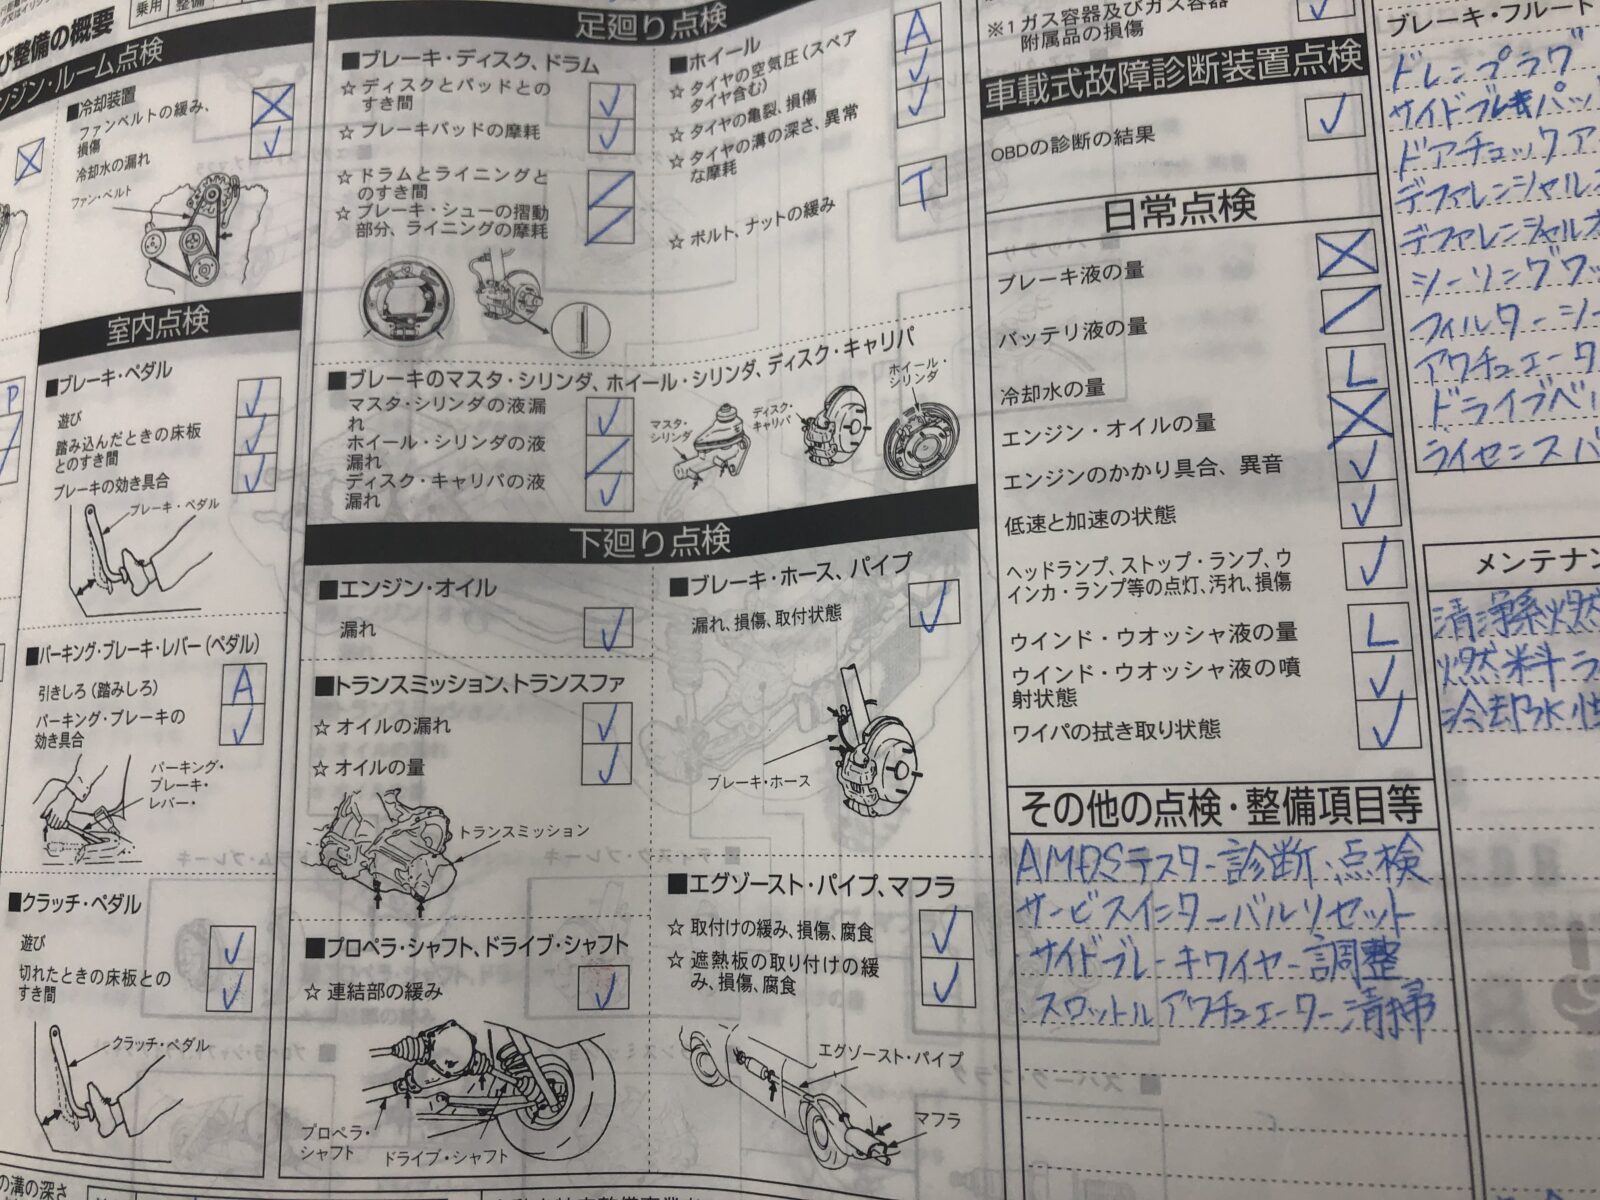 び整備の概要
乗用
整備
ンジン・ルーム点検
■冷却装置
ファンベルトの緩み、
損傷
冷却水の漏れ
ファン・ベルト
室内点検
■ブレーキ・ペダル
遊び
踏み込んだときの床板
とのすき間
ブレーキの効き具合
ブレーキ・ペダル
P
■パーキング・ブレーキ・レバー(ペダル)
引きしろ(踏みしろ)
A
パーキング・ブレーキの
効き具合
パーキング・
ブレーキ・
レバー・
■クラッチ・ペダル
遊び
切れたときの床板との
すき間
クラッチ・ペダル
の溝の深さ
足廻り点検
■ブレーキ・ディスク、ドラム
☆ ディスクとパッドとの
すき間
☆ ブレーキパッドの摩耗
☆ ドラムとライニングと
のすき間
☆ ブレーキ・シューの摺動
部分、ライニングの摩耗
■ホイール
☆ タイヤの空気圧(スペア
タイヤ含む)
A
☆ タイヤの亀裂、損傷
☆ タイヤの溝の深さ、異常
な摩耗
☆ ボルト、ナットの緩み
T
■ブレーキのマスタ・シリンダ、ホイール・シリンダ、ディスク・キャリパ
マスタ・シリンダの液漏
れ
ホイール・シリンダの液
漏れ
ディスク・キャリパの液
漏れ
マスタ・
シリンダ
ディスク・
キャリパ
ホイール・
シリンダ
下廻り点検
■エンジン・オイル
漏れ
■トランスミッション、トランスファ
☆ オイルの漏れ
☆ オイルの量
トランスミッション
■プロペラ・シャフト、ドライブ・シャフト
☆ 連結部の緩み
プロペラ・
シャフト
ドライブ・シャフト
■ブレーキ・ホース、パイプ
漏れ、損傷、取付状態
ブレーキ・ホース
■エグゾースト・パイプ、マフラ
☆ 取付けの緩み、損傷、腐食
☆ 遮熱板の取り付けの緩
み、損傷、腐食
エグゾースト・パイプ
マフラ
※1 ガス容器及びガス容器
附属品の損傷
車載式故障診断装置点検
OBDの診断の結果
日常点検
ブレーキ液の量
バッテリ液の量
冷却水の量
L
エンジン・オイルの量
エンジンのかかり具合、異音
低速と加速の状態
ヘッドランプ、ストップ・ランプ、ウ
インカ・ランプ等の点灯、汚れ、損傷
ウインド・ウオッシャ液の量
L
ウインド・ウオッシャ液の噴
射状態
ワイパの拭き取り状態
その他の点検・整備項目等
AMDSテスター診断・点検
サービスインターバルリセット
サイドブレーキワイヤー調整
スロットルアクチュエーター清掃
ブレーキ・フルート
ドレンプラグ
サイドブレーキパッ
ドアーチェックア
デファレンシャルオ
デファレンシャルオ
シーリングワッ
フィルターシー
アクチュエータ
ドライブベル
ライセンスバ
メンテナン
清浄系燃
燃料ラ
冷却水性